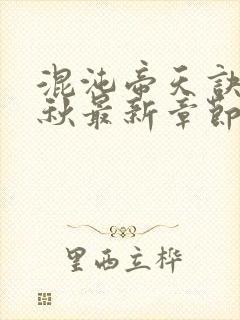 混沌帝天訣
秋最新章節
里西立桦